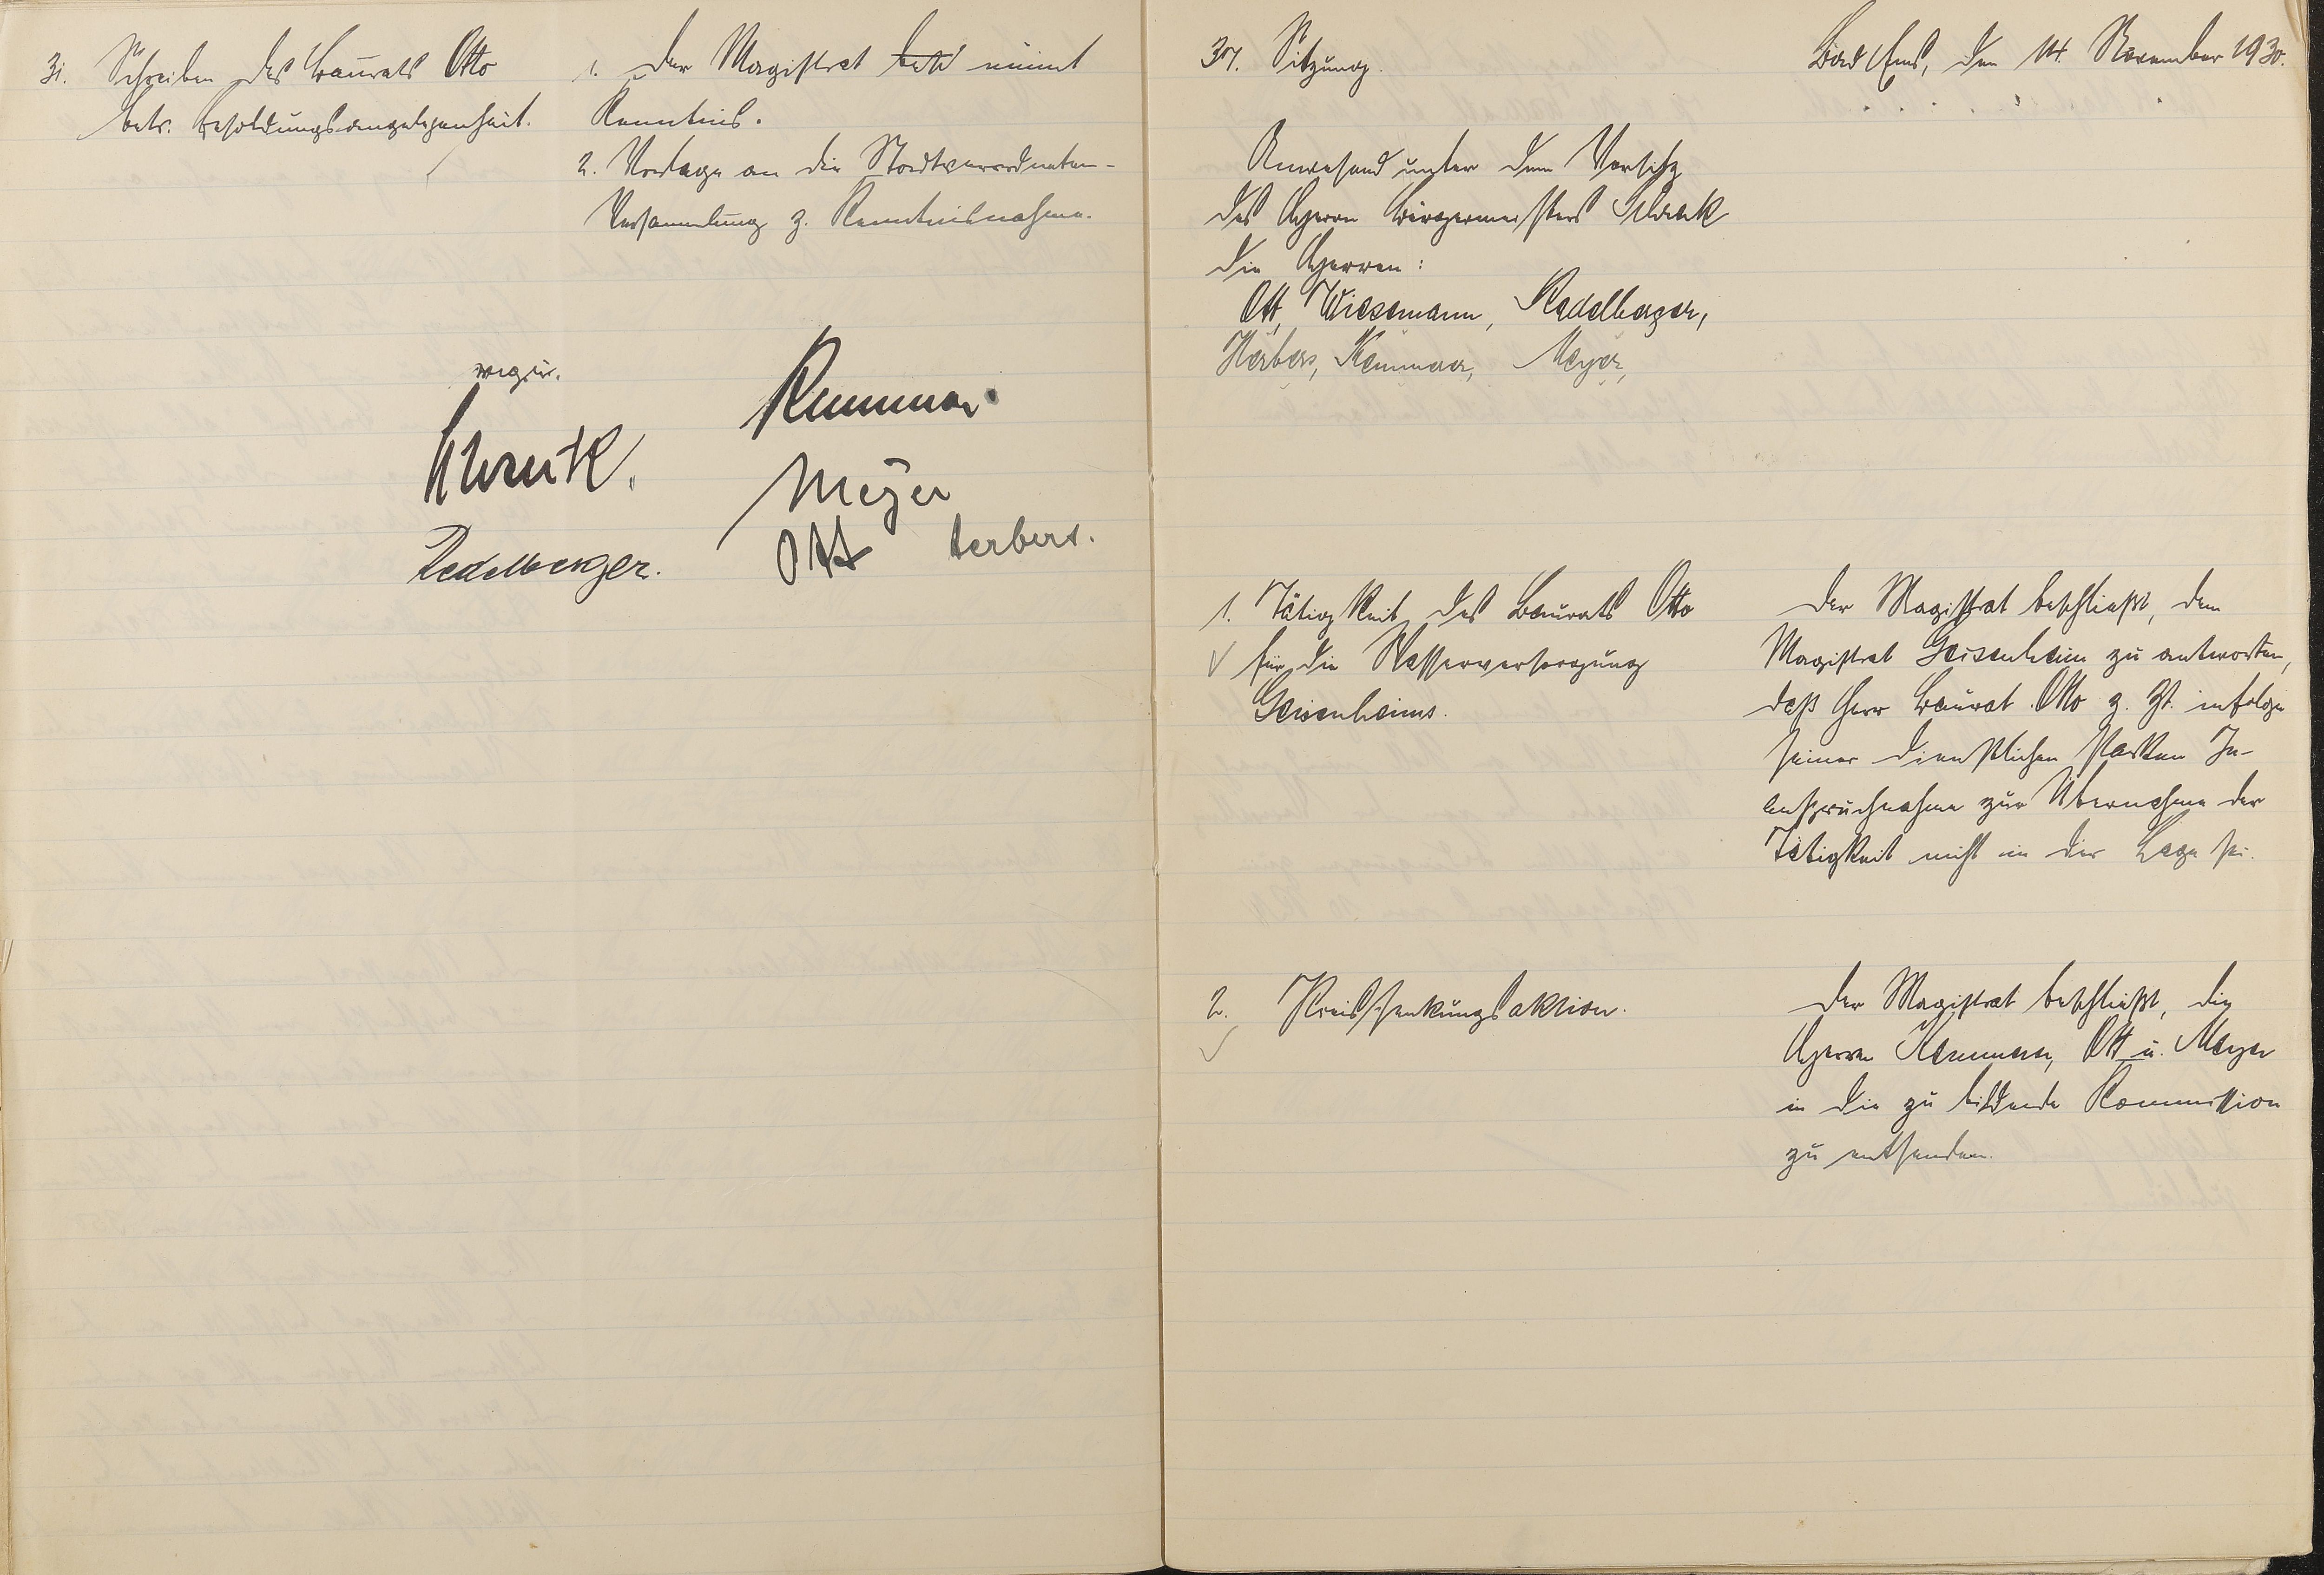 31. Schreiben des Baurats Otto
betr. Besoldungsangelegenheit.
1. Der Magistrat nimmt
Kenntnis.
2. Vorlage an die Stadtverordneten-
Versammlung z. Kenntnisnahme.
Schreck.
Redelberger.
Kemmer
Meyer
Ott Herbers.
37. Sitzung.
Bad Ems, den 14. November 1930.
Anwesend unter dem Vorsitz
des Herrn Bürgermeisters Schreck
die Herren:
Ott, Wiesemann, Redelberger,
Herbers, Kemmer, Meyer,
1. Tätigkeit des Baurats Otto
für die Wasserversorgung
Geisenheims.
Der Magistrat beschließt, dem
Magistrat Geisenheim zu antworten,
daß Herr Baurat Otto z. Zt. infolge
seiner dienstlichen starken In-
anspruchnahme zur Übernahme der
Tätigkeit nicht in der Lage sei.
2. Preissenkungsaktion.
Der Magistrat beschließt, die
Herren Kemmer, Ott u. Meyer
in die zu bildende Kommission
zu entsenden.